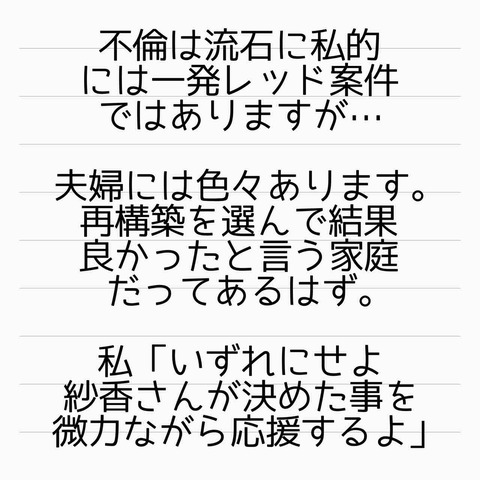 不倫は流石に私的
には一発レッド案件
ではありますが…
夫婦には色々あります。
再構築を選んで結果
良かったと言う家庭
だってあるはず。
私「いずれにせよ
紗香さんが決めた事を
微力ながら応援するよ」